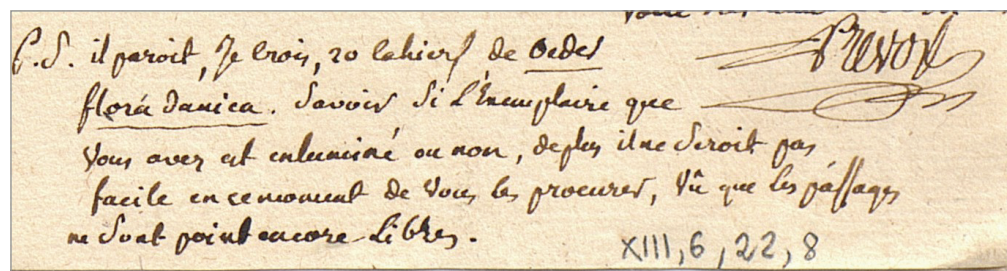 Prevost
P.S. il paroit, Je crois, 20 Cahiers de Oeder
flora danica. Savoir Si L'Exemplaire que
Vous avez est enluminé ou non, de plus il ne Seroit pas
facile en ce moment de Vous les procurer, Vû que les passages
ne Sont point encore Libres.
XIII, 6, 22, 8